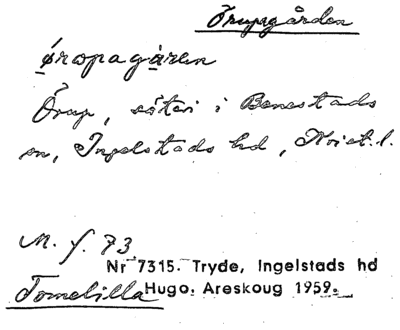 Örupgården
öropagåren
Örup, säteri i Benestads
sn, Ingelstads hd, Krist. l.
M. f. 73
Nr 7315. Tryde, Ingelstads hd
Tomelilla Hugo. Areskoug 1959.